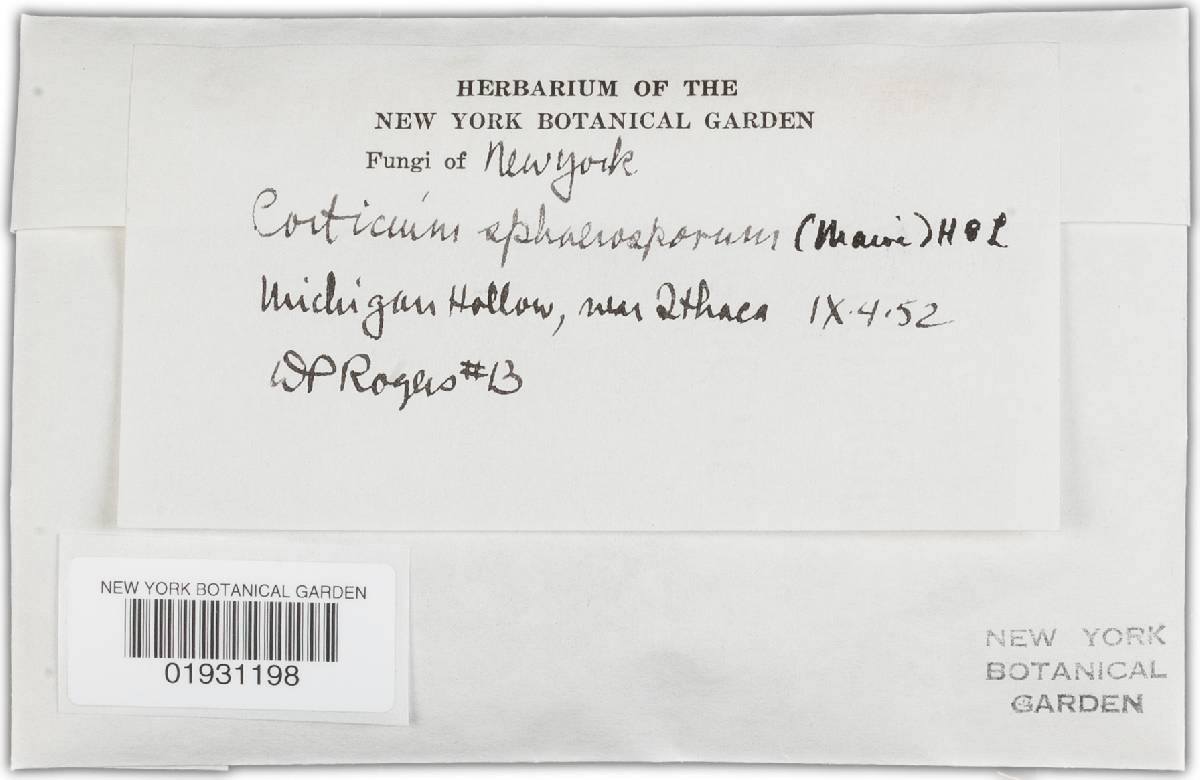 HERBARIUM OF THE
NEW YORK BOTANICAL GARDEN
Fungi of New York
Corticium sphaerosporum (Maire) H & L
Michigan Hollow, near Ithaca IX.4.52
DP Rogers #13
NEW YORK BOTANICAL GARDEN
01931198
NEW YORK
BOTANICAL
GARDEN